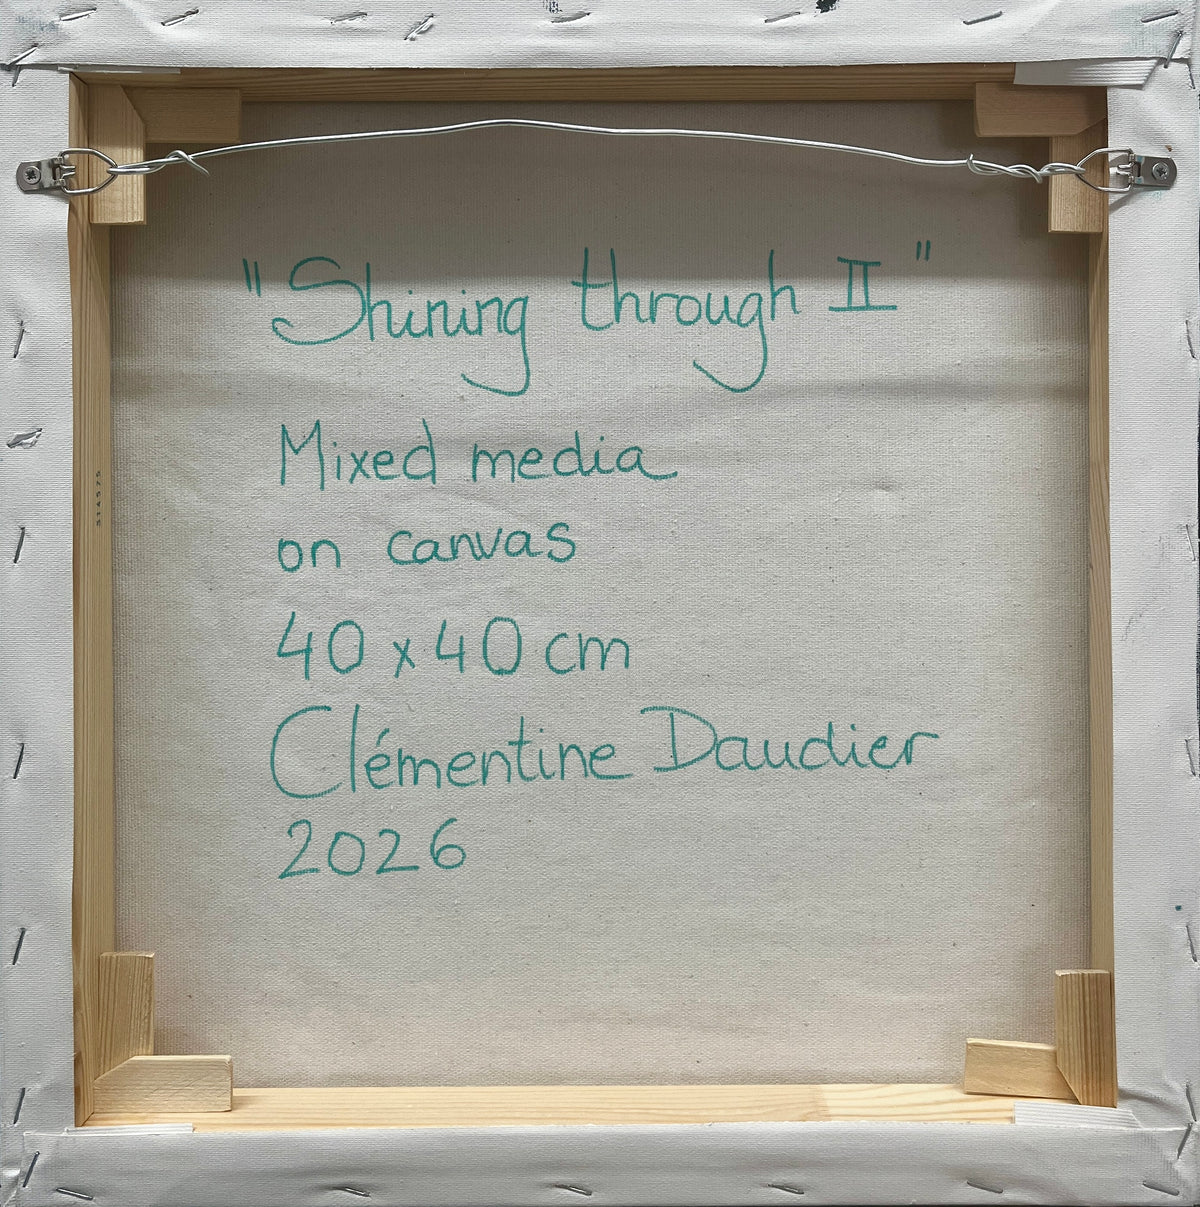 "Shining through II"
Mixed media
on canvas
40 x 40 cm
Clémentine Daudier
2026